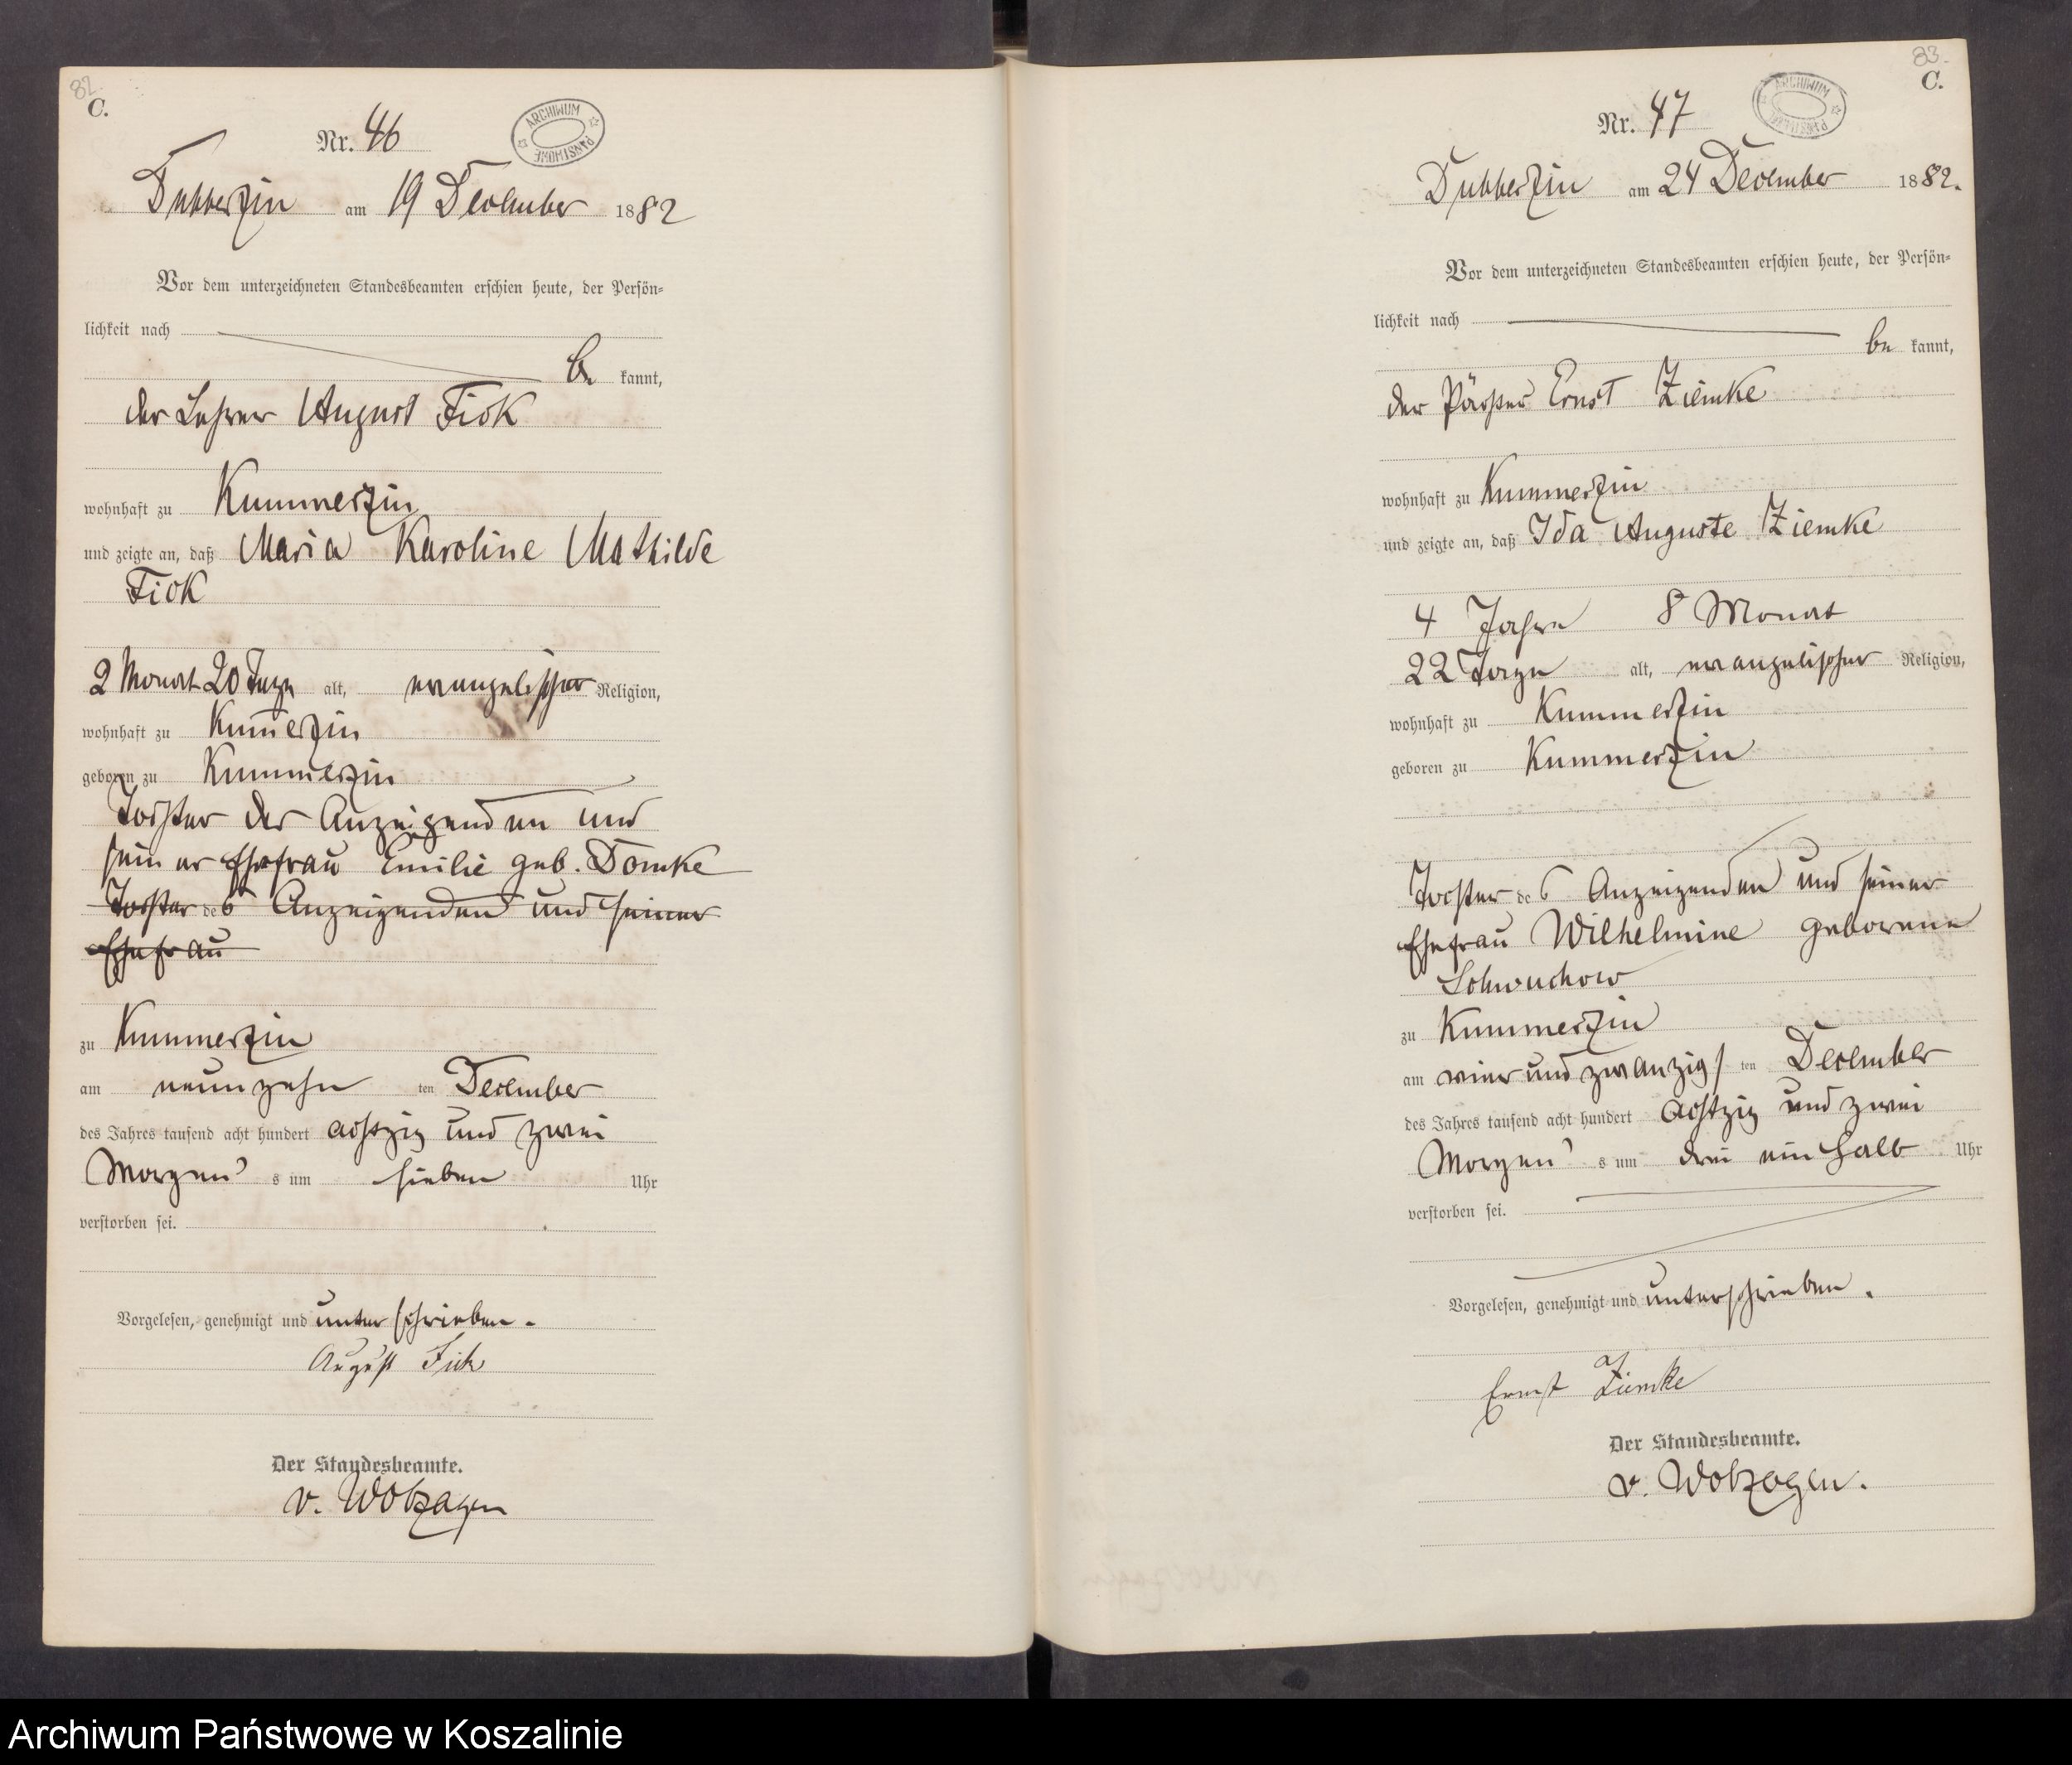 82.
C.
ARCHIWUM PAŃSTWOWE
Nr. 46
Dubberzin am 19 December 1882
Vor dem unterzeichneten Standesbeamten erschien heute, der Persön-
lichkeit nach
be kannt,
der Lehrer August Fick
wohnhaft zu Kummerzin
und zeigte an, daß Maria Karoline Mathilde
Fick
2 Monat 20 Tage alt, evangelischer Religion,
wohnhaft zu Kum̄erzin
geboren zu Kummerzin
Tochter des Anzeigenden und
seiner Ehefrau Emilie geb. Domke
Tochter des Anzeigenden und seiner
Ehefrau
zu Kummerzin
am neunzehn ten December
des Jahres tausend acht hundert achtzig und zwei
Morgen's um sieben Uhr
verstorben sei.
Vorgelesen, genehmigt und unterschrieben.
August Fick
Der Standesbeamte.
v. Wolzogen
83.
C.
ARCHIWUM PAŃSTWOWE
Nr. 47
Dubberzin am 24 December 1882.
Vor dem unterzeichneten Standesbeamten erschien heute, der Persön-
lichkeit nach
be kannt,
der Pächter Ernst Ziemke
wohnhaft zu Kummerzin
und zeigte an, daß Ida Auguste Ziemke
4 Jahre 8 Monat
22 Tage alt, evangelischer Religion,
wohnhaft zu Kummerzin
geboren zu Kummerzin
Tochter des Anzeigenden und seiner
Ehefrau Wilhelmine geborene
zu Kummerzin
am vier und zwanzigs ten December
des Jahres tausend acht hundert achtzig und zwei
Morgen's um drei ein halb Uhr
verstorben sei.
Vorgelesen, genehmigt und unterschrieben.
Ernst Ziemke
Der Standesbeamte.
v. Wolzogen.
Archiwum Państwowe w Koszalinie